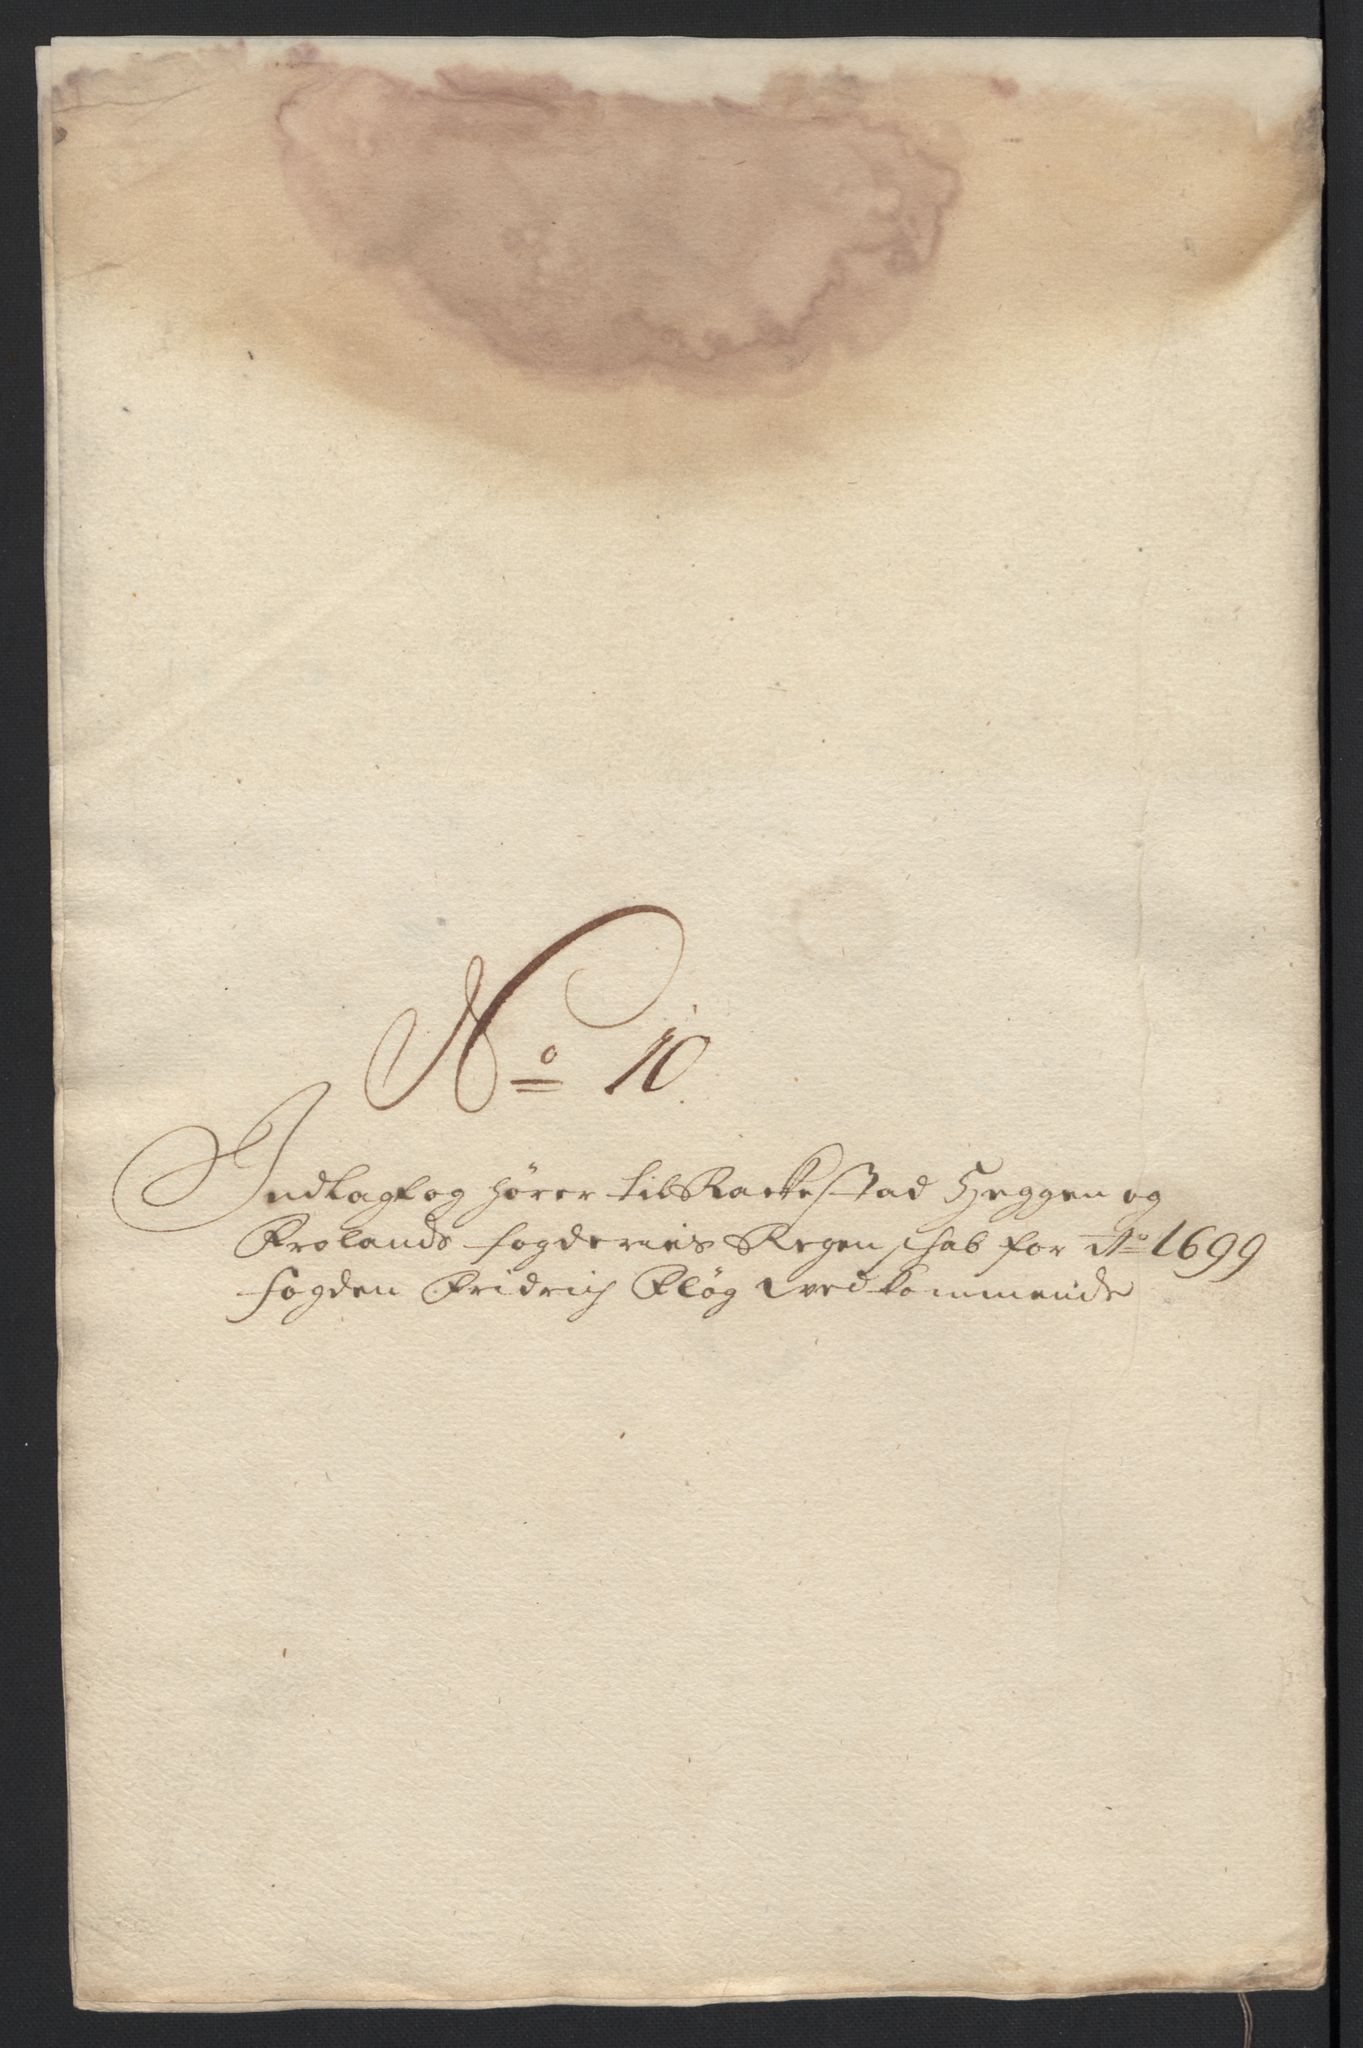 No 10.
Indlagt og hører til Rackestad Heggen og
Frolands fogderies Regenschab for Ao 1699
fogden Fridrich Pløg vedkommende